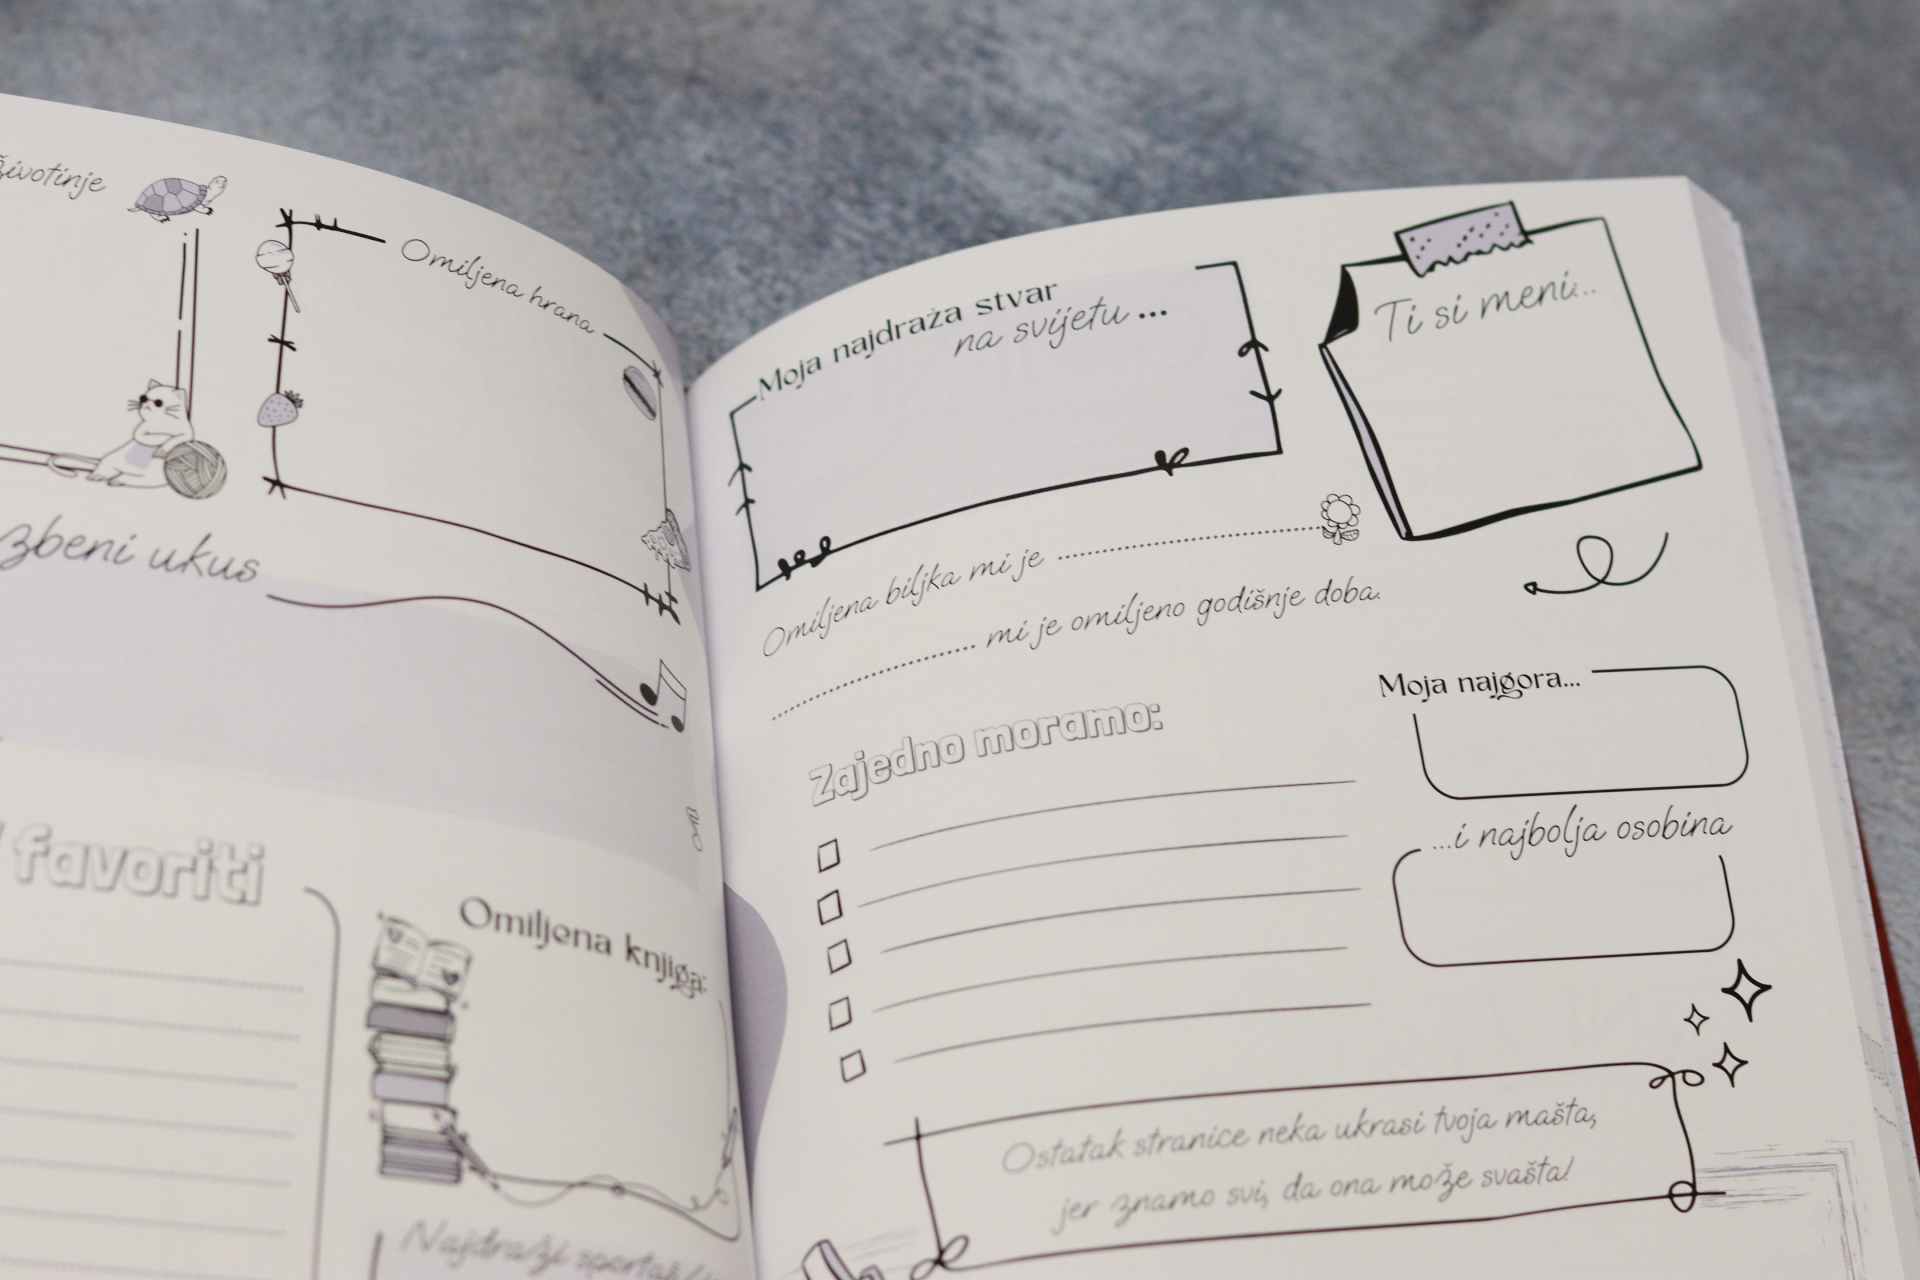 životinje
Omiljena hrana
ukus
favoriti
Omiljena knjiga:
Najdraži
Moja najdraža stvar
na svijetu ...
Ti si meni...
Omiljena biljka mi je
mi je omiljeno godišnje doba.
Zajedno moramo:
Moja najgora...
...i najbolja osobina
Ostatak stranice neka ukrasi tvoja mašta,
jer znamo svi, da ona može svašta!